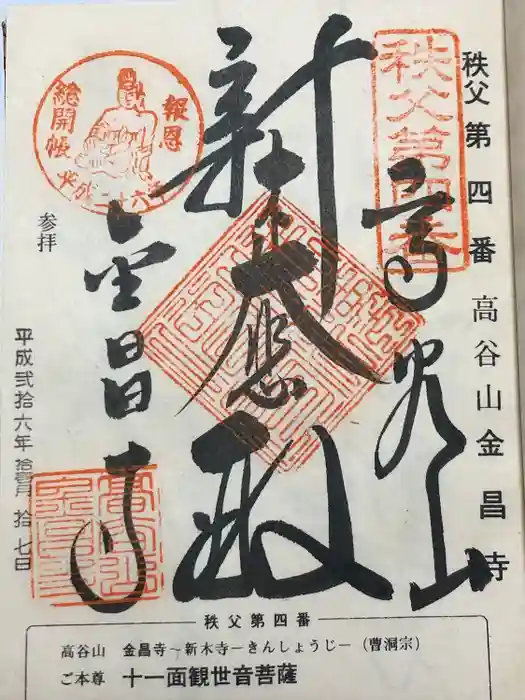 秩父第四番 高谷山金昌寺
秩父第四番
高谷山
新木
大悲殿
金昌寺
報恩
総開帳
平成二十六年
参拝
平成弐拾六年拾壱月拾七日
秩父第四番
高谷山 金昌寺~新木寺−きんしょうじ−(曹洞宗)
ご本尊 十一面観世音菩薩